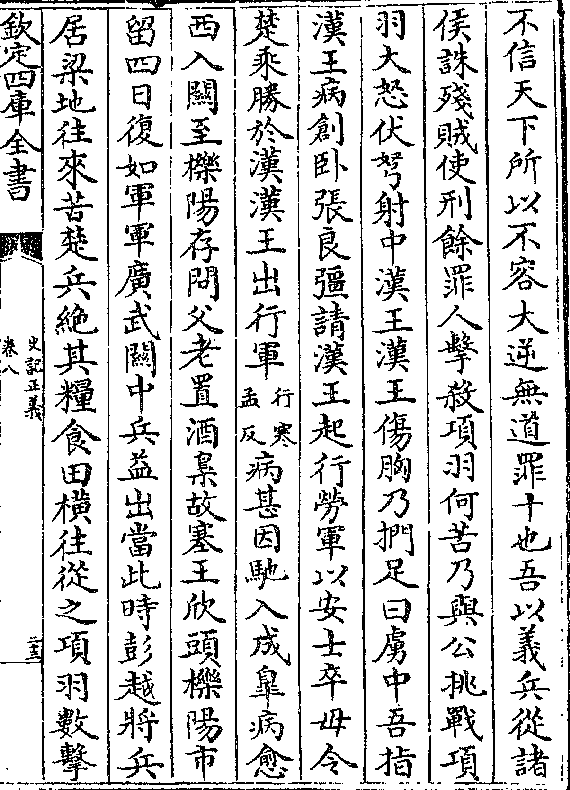 不信天下所以不容大逆無道罪十也吾以義兵從諸
侯誅殘賊使刑餘罪人擊殺項羽何苦乃與公挑戰項
羽大怒伏弩射中漢王漢王傷胸乃捫足曰虜中吾指
漢王病創卧張良彊請漢王起行勞軍以安士卒毋令
楚乘勝於漢漢王出行軍行寒孟反病甚因馳入成臯病愈
西入關至櫟陽存問父老置酒梟故塞王欣頭櫟陽市
留四日復如軍軍廣武關中兵益出當此時彭越將兵
居梁地往來苦楚兵絶其糧食田橫往從之項羽數擊
欽定四庫全書
史記正義
卷八